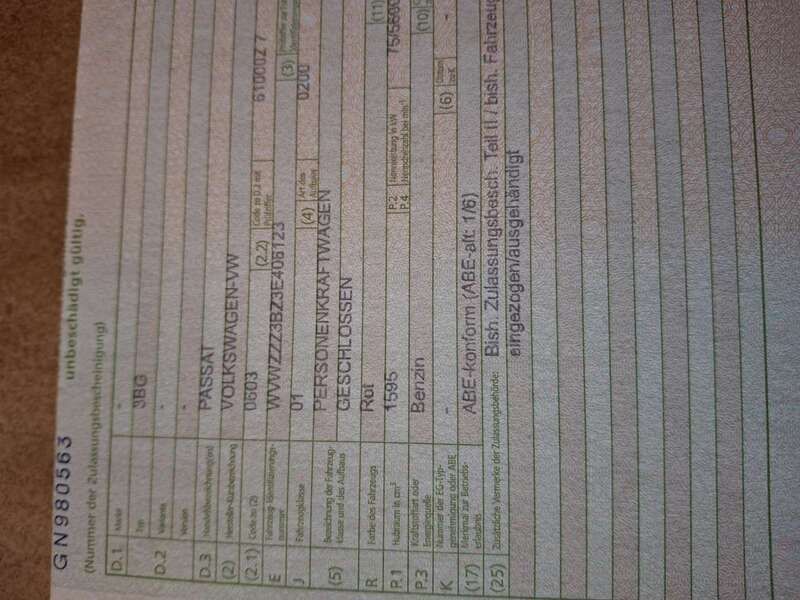 unbeschädigt gültig.
GN980563
(Nummer der Zulassungsbescheinigung)
D.1 Marke -
Typ 3BG
D.2 Variante -
Version -
D.3 Handelsbezeichnung(en) PASSAT
(2) Hersteller-Kurzbezeichnung VOLKSWAGEN-VW
(2.1) Code zu (2) 0603 (2.2) Code zu D.2 mit Prüfziffer 61000Z 7
E Fahrzeug-Identifizierungs-
nummer WVWZZZ3BZ3E406123 (3)
J Fahrzeugklasse 01 (4) Art des Aufbaus 0200
(5) Bezeichnung der Fahrzeug-
klasse und des Aufbaus PERSONENKRAFTWAGEN
GESCHLOSSEN
R Farbe des Fahrzeugs Rot (11)
P.1 Hubraum in cm³ 1595 P.2 P.4 Nennleistung in kW Nenndrehzahl bei min⁻¹
P.3 Kraftstoffart oder
Energiequelle Benzin (10)
K Nummer der EG-Typ-
genehmigung oder ABE - (6) Datum zu K -
(17) Merkmal zur Betriebs-
erlaubnis ABE-konform (ABE-alt: 1/6)
(25) Zusätzliche Vermerke der Zulassungsbehörde: Bish. Zulassungsbesch. Teil II / bish.
eingezogen/ausgehändigt